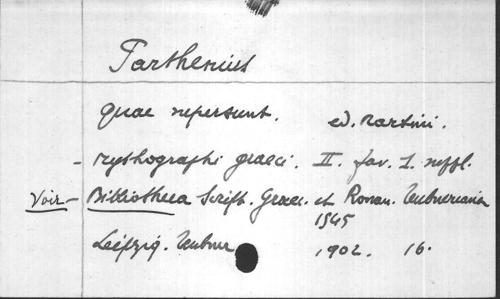 Parthenius
quae supersunt. ed. Martini.
- Mythographi graeci. II. fasc. I. suppl.
Voir - Bibliotheca Script. Graec. et Roman. Teubneriana
1545
Leipzig. Teubner 1902. 16.